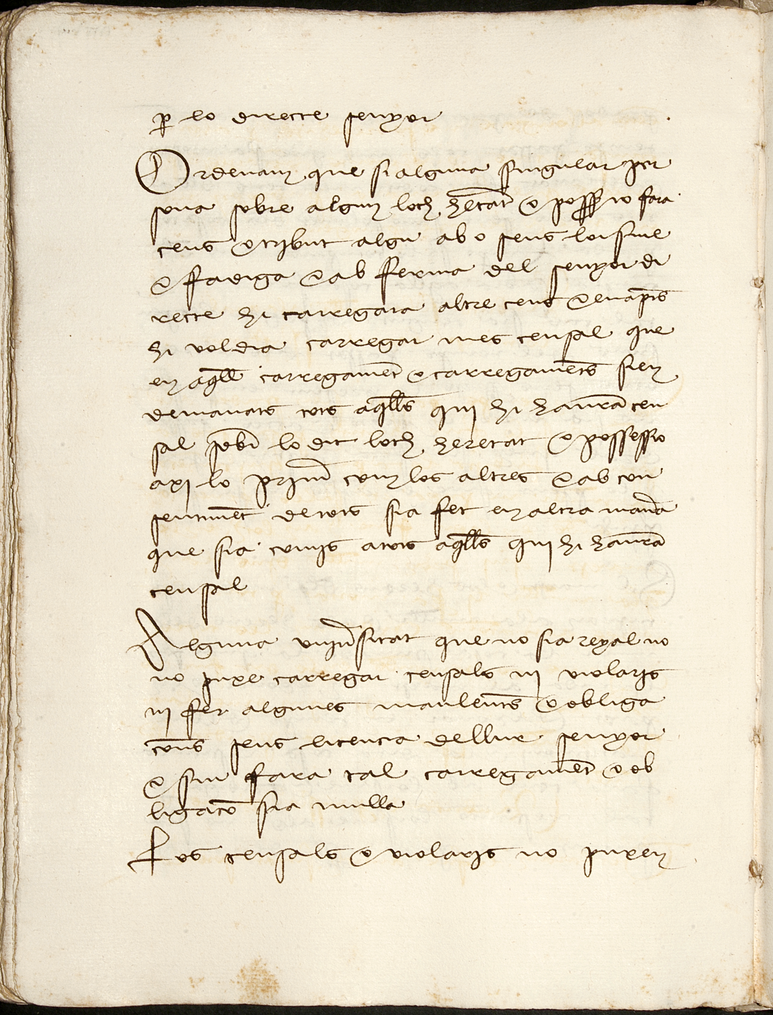 p lo directe senyor
Ordenam que si alguna singular per
sona sobre algun loch heretat o possessio fara
cens o tribut algu ab o sens loisme
o fadiga e ab ferma del senyor di
recte hi carregara altre cens e en apres
hi voldra carregar mes censal que
en aqll carregament o carregaments sien
demanats tots aqlls qui hi hauran cen
sal sobre lo dit loch heretat o possessio
axi lo primer com los altres e ab con
sentiment de tots sia fet en altra manera
que sia comis a tots aqlls qui hi hauran
censal
Alguna universitat que no sia reyal no
no puxe carregar censals ni violaris
ni fer algunes manleutes o obliga
cons sens licencia de llur senyor
e si u fara tal carregament o ob
ligaco sia nulla
Los censals o violaris no puxen